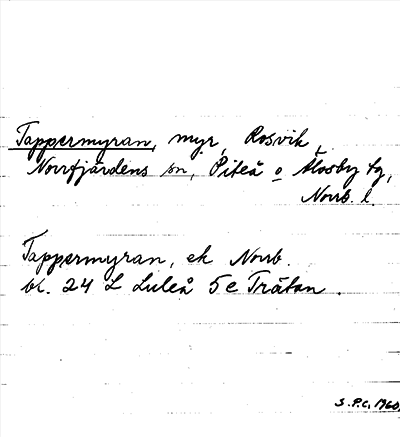 Tappermyran, myr, Rosvik,
Norrfjärdens sn, Piteå o Älvsby tg,
Norrb. l.
Tappermyran, ek Norrb.
bl. 24 L Luleå 5e Trätan.
S.P.C. 1960